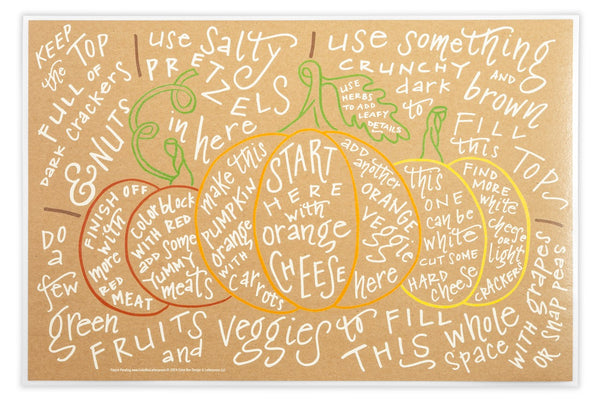 KEEP
the TOP
FULL OF
DARK CRACKERS
& NUTS
use Salty
PRETZELS
in here
use something
CRUNCHY AND
dark brown
to
FILL
this TOPS
USE
HERBS
TO ADD
LEAFY
DETAILS
FINISH OFF
with
more
RED
MEAT
Color block
WITH RED
add some
YUMMY
meats
make this
PUMPKIN
orange
WITH
carrots
START
HERE
with
orange
CHEESE
ADD
another
ORANGE
Veggie
here
this
ONE
can be
white
CUT SOME
HARD
cheese
FIND
MORE
white
cheese
or
light
CRACKERS
DO
a
few
green
FRUITS
and
veggies to FILL
THIS whole
space
WITH grapes
OR SNAP PEAS